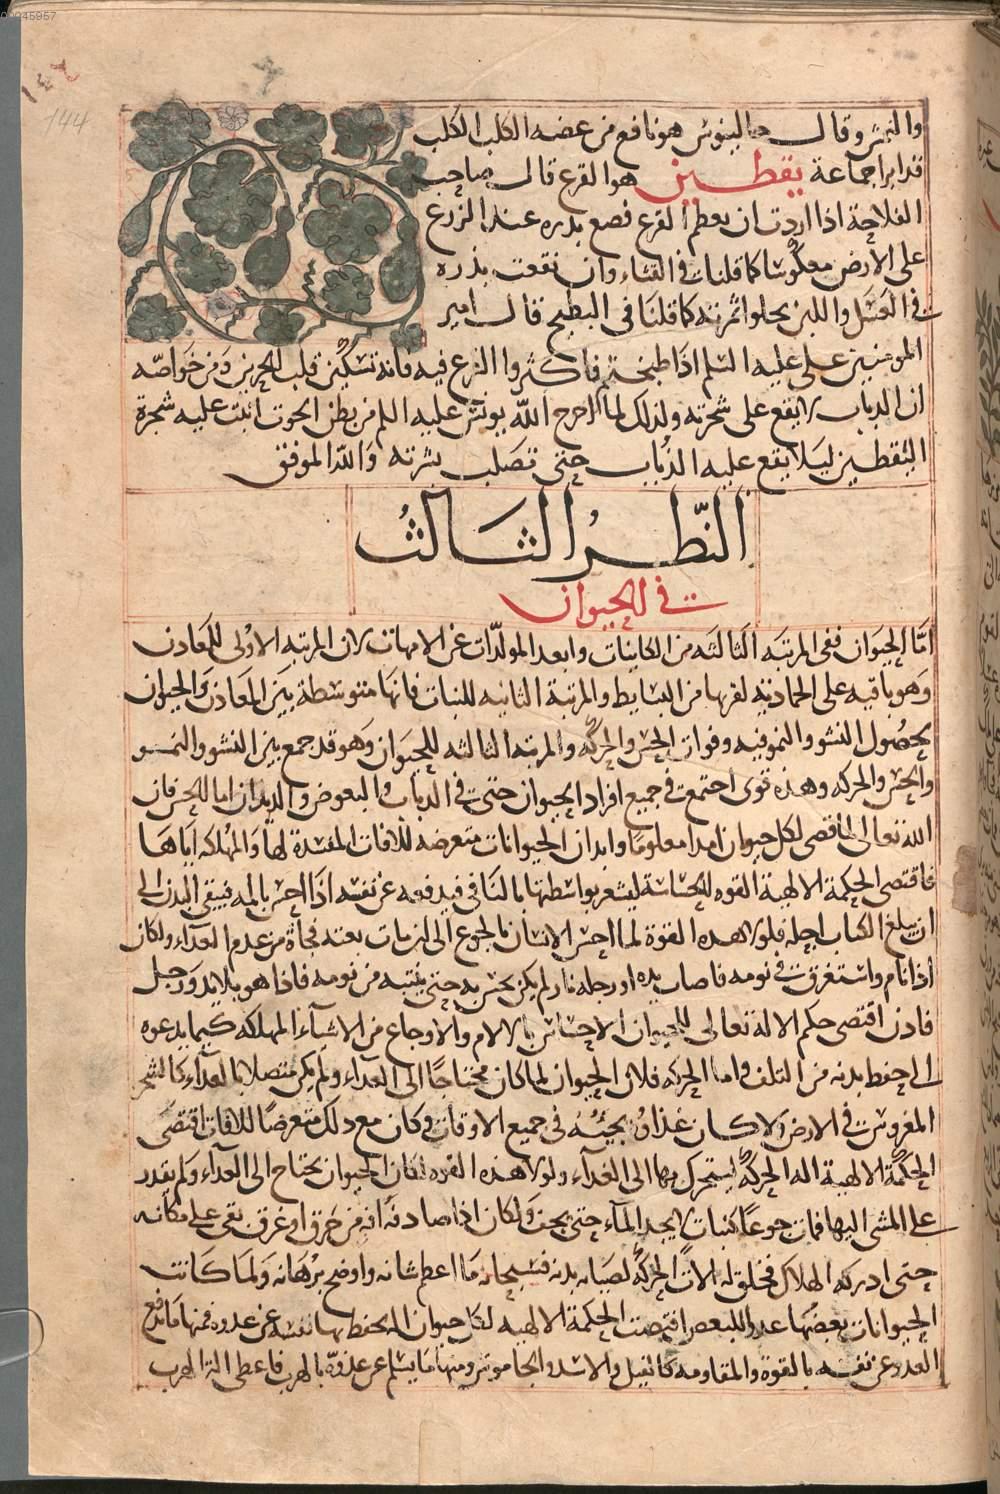 00045957
١٤٤
144
والنهش وقال جالينوس هو نافع من عضه الكلب الكلب
قد ابرا جماعة يقطين هو القرع قال صاحب
الفلاحة اذا اردت ان يعظم القرع فضع بذره عند الزرع
على الارض معكوسا كما قلنا في القثاء وان نقعت بذره
في العسل واللبن يحلو اثمرته كما قلنا في البطيخ قال امير
المومنين على عليه السلم اذا طبختم فاكثروا القرع فيه فانه تسكين قلب الحزين ومن خواصه
ان الذباب لا يقع على شجرته ولذلك لما اخرج الله يونس عليه السلم من بطن الحوت انبت عليه شجرة
اليقطين ليلا يقع عليه الذباب حتى تصلب بشرته والله الموفق
النظر الثالث
في الحيوان
اما الحيوان ففى المرتبه الثالثه من الكاينات وابعد المولدات عن الامهات لان المرتبه الاولى للمعادن
وهو باقيه على الجماديه لقربها من البسايط والمرتبة الثانيه للنبات فانها متوسطة بين المعادن والحيوان
بحصول النشو والنمو فيه وفوات الحس والحركه والمرتبه الثالثه للحيوان وهو قد جمع بين النشو والنمو
والحس والحركه وهذه قوى اجتمعت في جميع افراد الحيوان حتى في الذباب والبعوض والديدان اما الحس فان
الله تعالى لما قضى لكل حيوان امدا معلوما وابدان الحيوانات متعرضه للافات المفسدة لها والمهلكه اياها
فاقتضى الحكمة الالهية القوه الحساسة ليشعر بواسطتها بالمنافى فيدفعه عن نفسه اذا احس بالمه فيبقى البدن الى
ان يبلغ الكتاب اجله فلولا هذه القوة لما احس الانسان بالجوع الى ان مات بغته فجأة من عدم الغذاء ولكان
اذا نام واستغرق في نومه فاصاب يده او رجله نار لم يكن يحس به حتى ينتبه من نومه فاذا هو بلا يد ورجل
فاذن اقتضى حكم الاله تعالى للحيوان الاحساس بالالام والاوجاع من الاشياء المهلكه كيما يدعوه
الى حفظ بدنه من التلف واما الحركه فلان الحيوان لما كان محتاجا الى الغذاء ولم يكن متصلا بالغذاء كالشجر
المغروس في الارض لا كان غذاؤه يجيئه في جميع الاوقات وكان مع ذلك متعرضا للافات اقتضى
الحكمة الالهية اله الحركه ليتحرك بها الى الغذاء ولولا هذه القوه لكان الحيوان يحتاج الى الغذاء ولم يقدر
على المشى اليها فمات جوعا كنبات لا يجد الماء حتى يجف ولكان اذا صادفه افه من حرق او غرق بقى على مكانه
حتى ادركه الهلاك فخلق له الات الحركه لصيانه بدنه فسبحانه ما اعظم شانه واوضح برهانه ولما كانت
الحيوانات بعضها عدو البعض اقتضت الحكمة الالهيه لكل حيوان اله يحفظ بها نفسه عن عدوه فمنها ما يدفع
العدو عن نفسه بالقوة والمقاومه كالفيل والاسد والجاموس ومنها ما يسلم عن عدوه بالهرب فاعطى الة الهرب